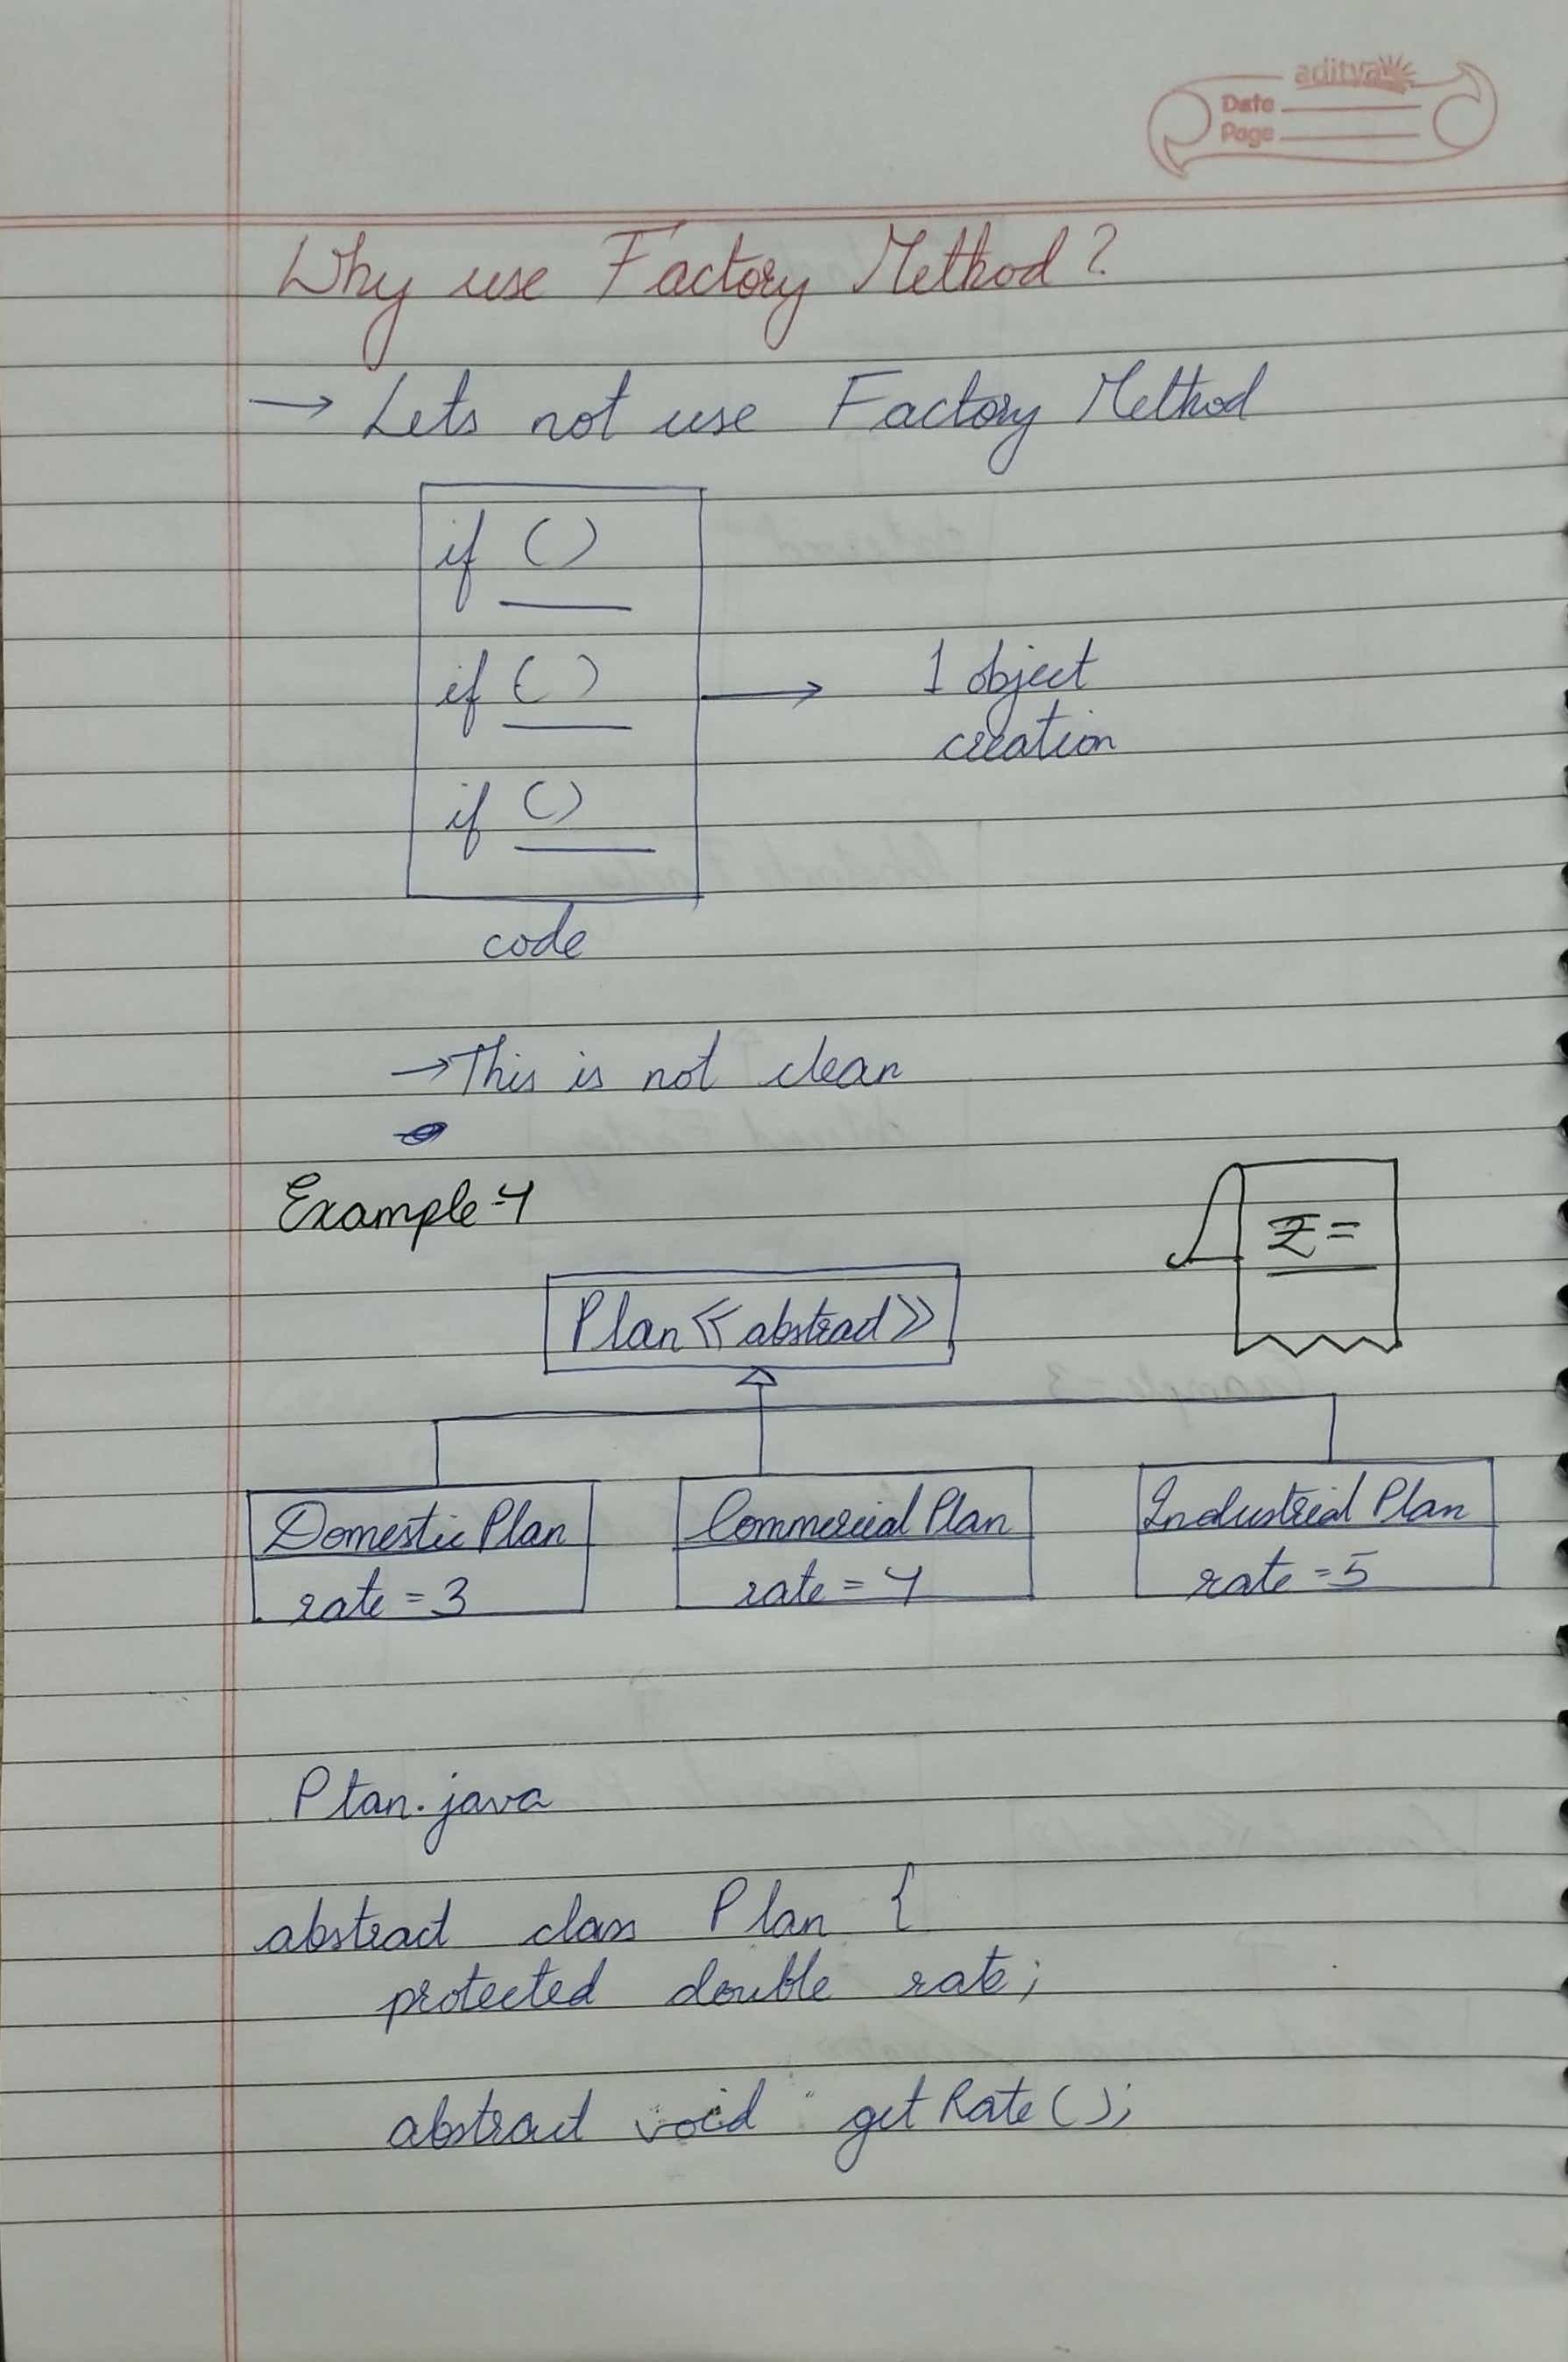 aditya
Date
Page
Why use Factory Method?
→ Lets not use Factory Method
if ()
if ()
if ()
→ 1 object
creation
code
→ This is not clean
Example-4
₹=
Plan << abstract >>
Domestic Plan
rate = 3
Commercial Plan
rate = 4
Industrial Plan
rate = 5
Plan.java
abstract class Plan {
protected double rate;
abstract void getRate();